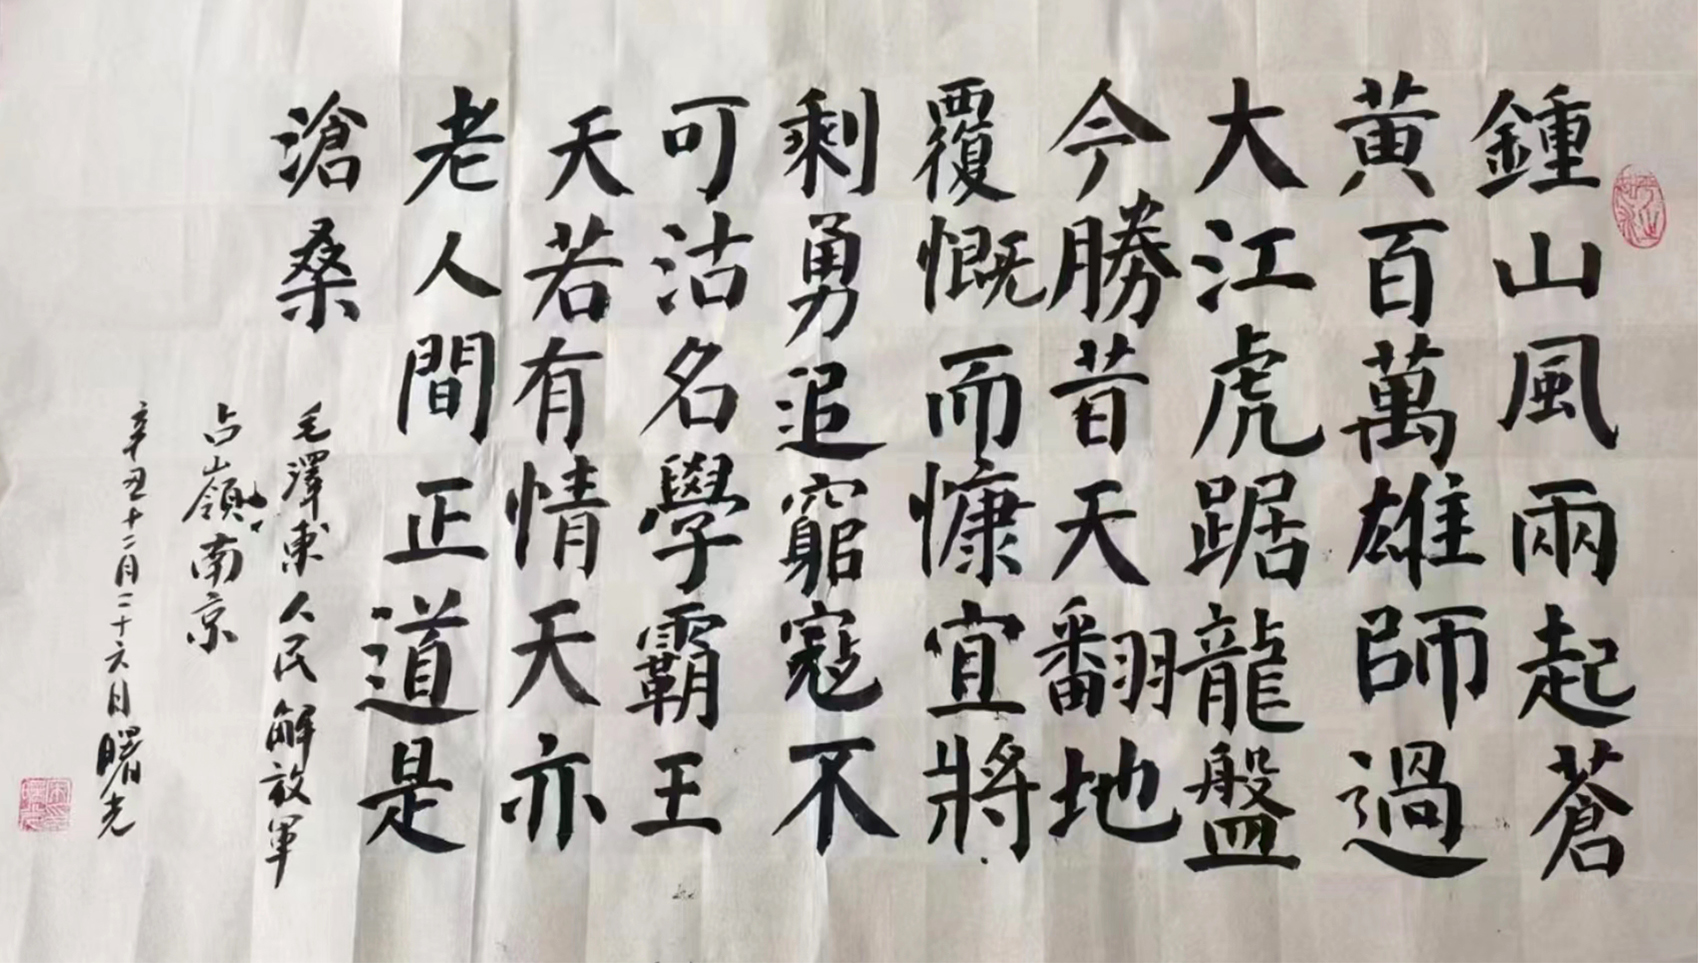 鍾山風兩起蒼
黃百萬雄師過
大江虎踞龍盤
今勝昔天翻地
覆慨而慷宜將
剩勇追窮寇不
可沽名學霸王
天若有情天亦
老人間正道是
滄桑
毛澤東人民解放軍
占領南京
辛丑十二月二十六日曙光